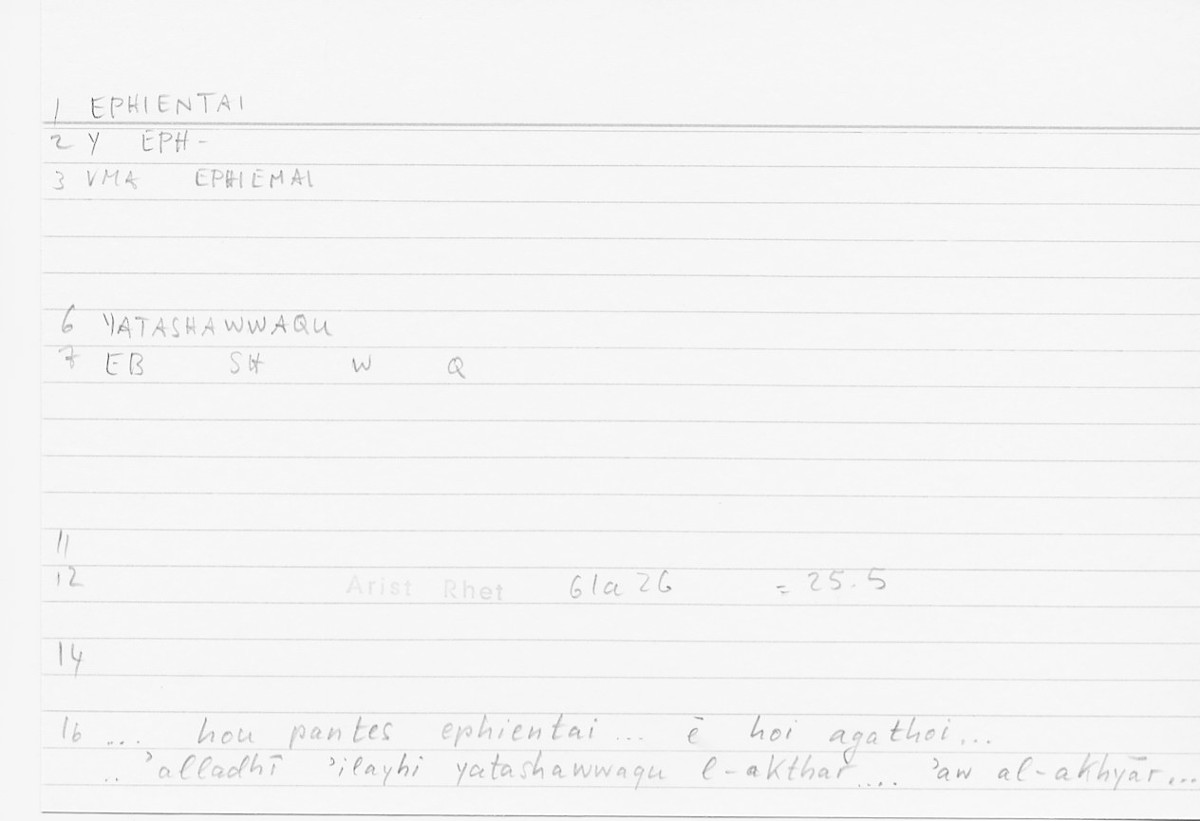 1 EPHIENTAI
2 Y EPH-
3 VMA EPHIEMAI
6 YATASHAWWAQU
7 EB SH W Q
11
12 Arist Rhet 61a26 = 25.5
14
16 ... hou pantes ephientai... ē hoi agathoi...
.. ʾalladhī ʾilayhi yatashawwaqu l-akthar.... ʾaw al-akhyār...